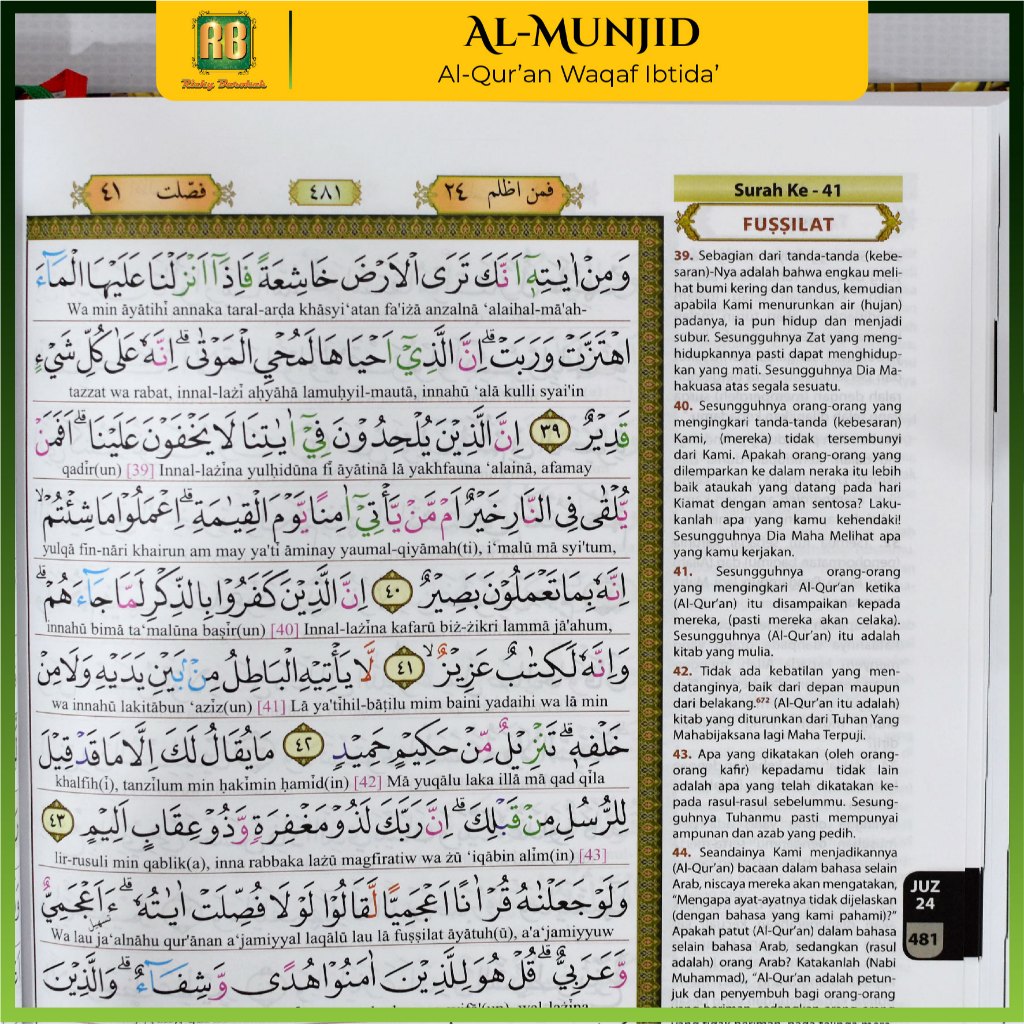 RB
Rizky Barokah
AL-MUNJID
Al-Qur'an Waqaf Ibtida'
فصّلت ٤١
٤٨١
فمن اظلم ٢٤
وَمِنْ اٰيٰتِهٖٓ اَنَّكَ تَرَى الْاَرْضَ خَاشِعَةً فَاِذَآ اَنْزَلْنَا عَلَيْهَا الْمَاۤءَ
Wa min āyātihī annaka taral-arḍa khāsyi‘atan fa'iżā anzalnā ‘alaihal-mā'ah-
اهْتَزَّتْ وَرَبَتْۗ اِنَّ الَّذِيْٓ اَحْيَاهَا لَمُحْيِ الْمَوْتٰىۗ اِنَّهٗ عَلٰى كُلِّ شَيْءٍ
tazzat wa rabat, innal-lażī aḥyāhā lamuḥyil-mautā, innahū ‘alā kulli syai'in
قَدِيْرٌ ٣٩ اِنَّ الَّذِيْنَ يُلْحِدُوْنَ فِيْٓ اٰيٰتِنَا لَا يَخْفَوْنَ عَلَيْنَاۗ اَفَمَنْ
qadīr(un) [39] Innal-lażīna yulḥidūna fī āyātinā lā yakhfauna ‘alainā, afamay
يُّلْقٰى فِى النَّارِ خَيْرٌ اَمْ مَّنْ يَّأْتِيْٓ اٰمِنًا يَّوْمَ الْقِيٰمَةِۗ اِعْمَلُوْا مَا شِئْتُمْۙ
yulqā fin-nāri khairun am may ya'tī āminay yaumal-qiyāmah(ti), i‘malū mā syi'tum,
اِنَّهٗ بِمَا تَعْمَلُوْنَ بَصِيْرٌ ٤٠ اِنَّ الَّذِيْنَ كَفَرُوْا بِالذِّكْرِ لَمَّا جَاۤءَهُمْۗ
innahū bimā ta‘malūna baṣīr(un) [40] Innal-lażīna kafarū biż-żikri lammā jā'ahum,
وَاِنَّهٗ لَكِتٰبٌ عَزِيْزٌۙ ٤١ لَّا يَأْتِيْهِ الْبَاطِلُ مِنْۢ بَيْنِ يَدَيْهِ وَلَا مِنْ
wa innahū lakitābun ‘azīz(un) [41] Lā ya'tīhil-bāṭilu mim baini yadaihi wa lā min
خَلْفِهٖۗ تَنْزِيْلٌ مِّنْ حَكِيْمٍ حَمِيْدٍ ٤٢ مَا يُقَالُ لَكَ اِلَّا مَا قَدْ قِيْلَ
khalfih(ī), tanzīlum min ḥakīmin ḥamīd(in) [42] Mā yuqālu laka illā mā qad qīla
لِلرُّسُلِ مِنْ قَبْلِكَۗ اِنَّ رَبَّكَ لَذُوْ مَغْفِرَةٍ وَّذُوْ عِقَابٍ اَلِيْمٍ ٤٣
lir-rusuli min qablik(a), inna rabbaka lażū magfiratiw wa żū ‘iqābin alīm(in) [43]
وَلَوْ جَعَلْنٰهُ قُرْاٰنًا اَعْجَمِيًّا لَّقَالُوْا لَوْلَا فُصِّلَتْ اٰيٰتُهٗۗ ءَاَعْجَمِيٌّ
تسهيل
Wa lau ja‘alnāhu qur'ānan a‘jamiyyal laqālū lau lā fuṣṣilat āyātuh(ū), a'a‘jamiyyuw
وَّعَرَبِيٌّۗ قُلْ هُوَ لِلَّذِيْنَ اٰمَنُوْا هُدًى وَّشِفَاۤءٌۗ وَالَّذِيْنَ
Surah Ke - 41
FUṢṢILAT
39. Sebagian dari tanda-tanda (kebe-
saran)-Nya adalah bahwa engkau meli-
hat bumi kering dan tandus, kemudian
apabila Kami menurunkan air (hujan)
padanya, ia pun hidup dan menjadi
subur. Sesungguhnya Zat yang meng-
hidupkannya pasti dapat menghidup-
kan yang mati. Sesungguhnya Dia Ma-
hakuasa atas segala sesuatu.
40. Sesungguhnya orang-orang yang
mengingkari tanda-tanda (kebesaran)
Kami, (mereka) tidak tersembunyi
dari Kami. Apakah orang-orang yang
dilemparkan ke dalam neraka itu lebih
baik ataukah yang datang pada hari
Kiamat dengan aman sentosa? Laku-
kanlah apa yang kamu kehendaki!
Sesungguhnya Dia Maha Melihat apa
yang kamu kerjakan.
41. Sesungguhnya orang-orang
yang mengingkari Al-Qur'an ketika
(Al-Qur'an) itu disampaikan kepada
mereka, (pasti mereka akan celaka).
Sesungguhnya (Al-Qur'an) itu adalah
kitab yang mulia.
42. Tidak ada kebatilan yang men-
datanginya, baik dari depan maupun
dari belakang.⁶⁷² (Al-Qur'an itu adalah)
kitab yang diturunkan dari Tuhan Yang
Mahabijaksana lagi Maha Terpuji.
43. Apa yang dikatakan (oleh orang-
orang kafir) kepadamu tidak lain
adalah apa yang telah dikatakan ke-
pada rasul-rasul sebelummu. Sesung-
guhnya Tuhanmu pasti mempunyai
ampunan dan azab yang pedih.
44. Seandainya Kami menjadikannya
(Al-Qur'an) bacaan dalam bahasa selain
Arab, niscaya mereka akan mengatakan,
"Mengapa ayat-ayatnya tidak dijelaskan
(dengan bahasa yang kami pahami)?"
Apakah patut (Al-Qur'an) dalam bahasa
selain bahasa Arab, sedangkan (rasul
adalah) orang Arab? Katakanlah (Nabi
Muhammad), "Al-Qur'an adalah petun-
juk dan penyembuh bagi orang-orang
JUZ
24
481